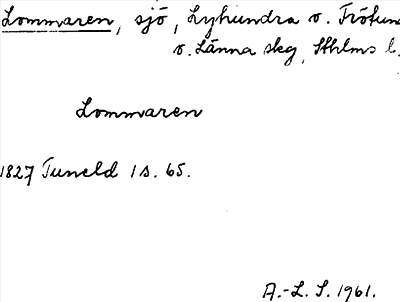 Lommaren, sjö, Lyhundra o. Frötuna
o. Länna skg, Sthlms l.
Lommaren
1827 Tuneld 1 s. 65.
A.-L. S. 1961.